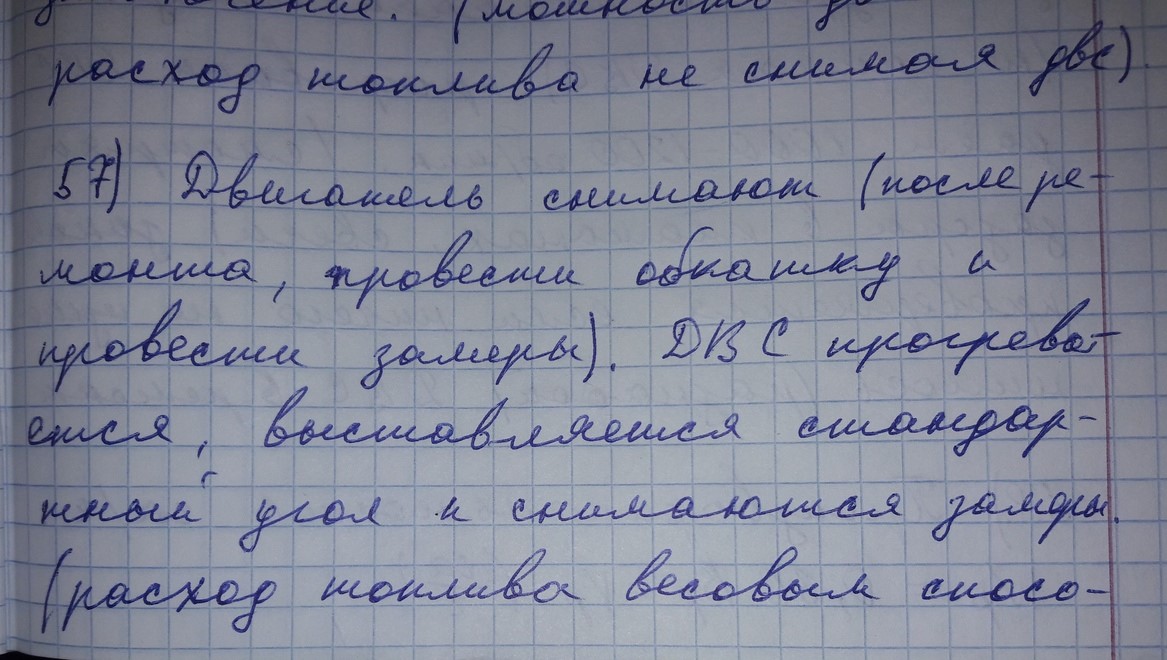 (мощность
расход топлива не снимая двс)
57) Двигатель снимают (после ре-
монта, провести обкатку и
провести замеры). ДВС прогрева-
ется, выставляется стандар-
тный угол и снимаются замеры.
(расход топлива весовым спосо-